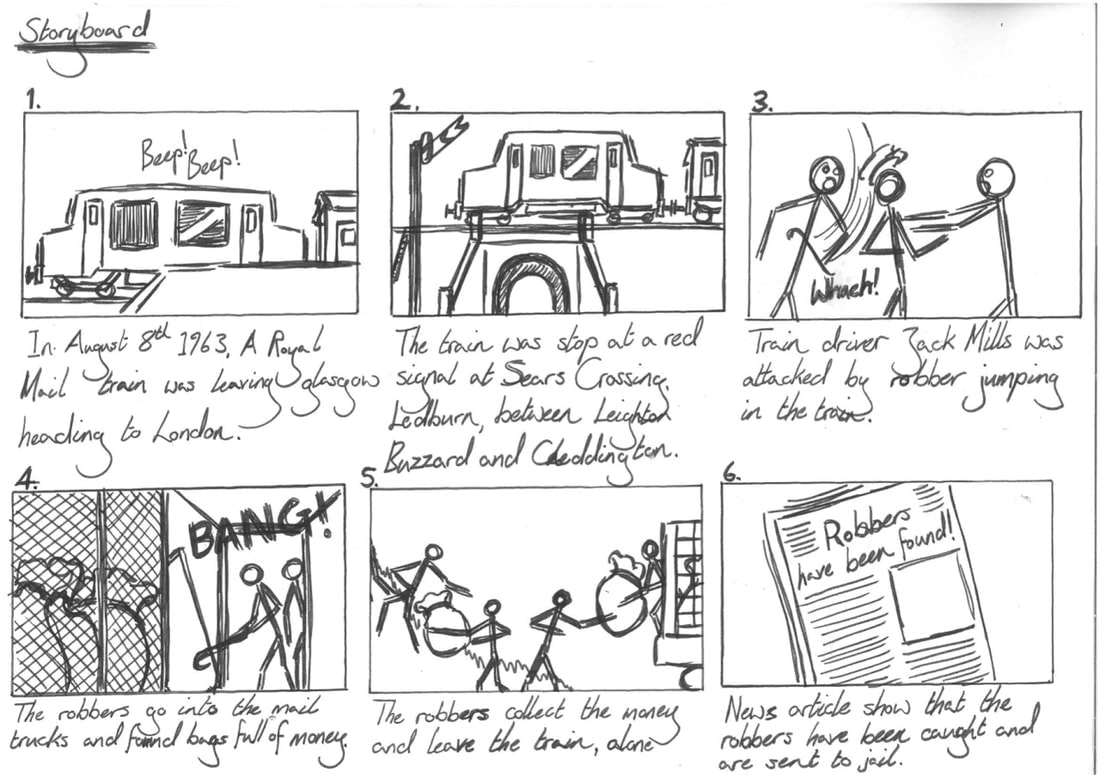 Storyboard
1.
Beep!
Beep!
In August 8th 1963, A Royal
Mail train was leaving glasgow
heading to London.
2.
The train was stop at a red
signal at Sears Crossing,
Ledburn, between Leighton
Buzzard and Cheddington.
3.
Whack!
Train driver Jack Mills was
attacked by robber jumping
in the train.
4.
BANG!
The robbers go into the mail
trucks and found bags full of money.
5.
The robbers collect the money
and leave the train, alone
6.
Robbers
have been found!
News article show that the
robbers have been caught and
are sent to jail.